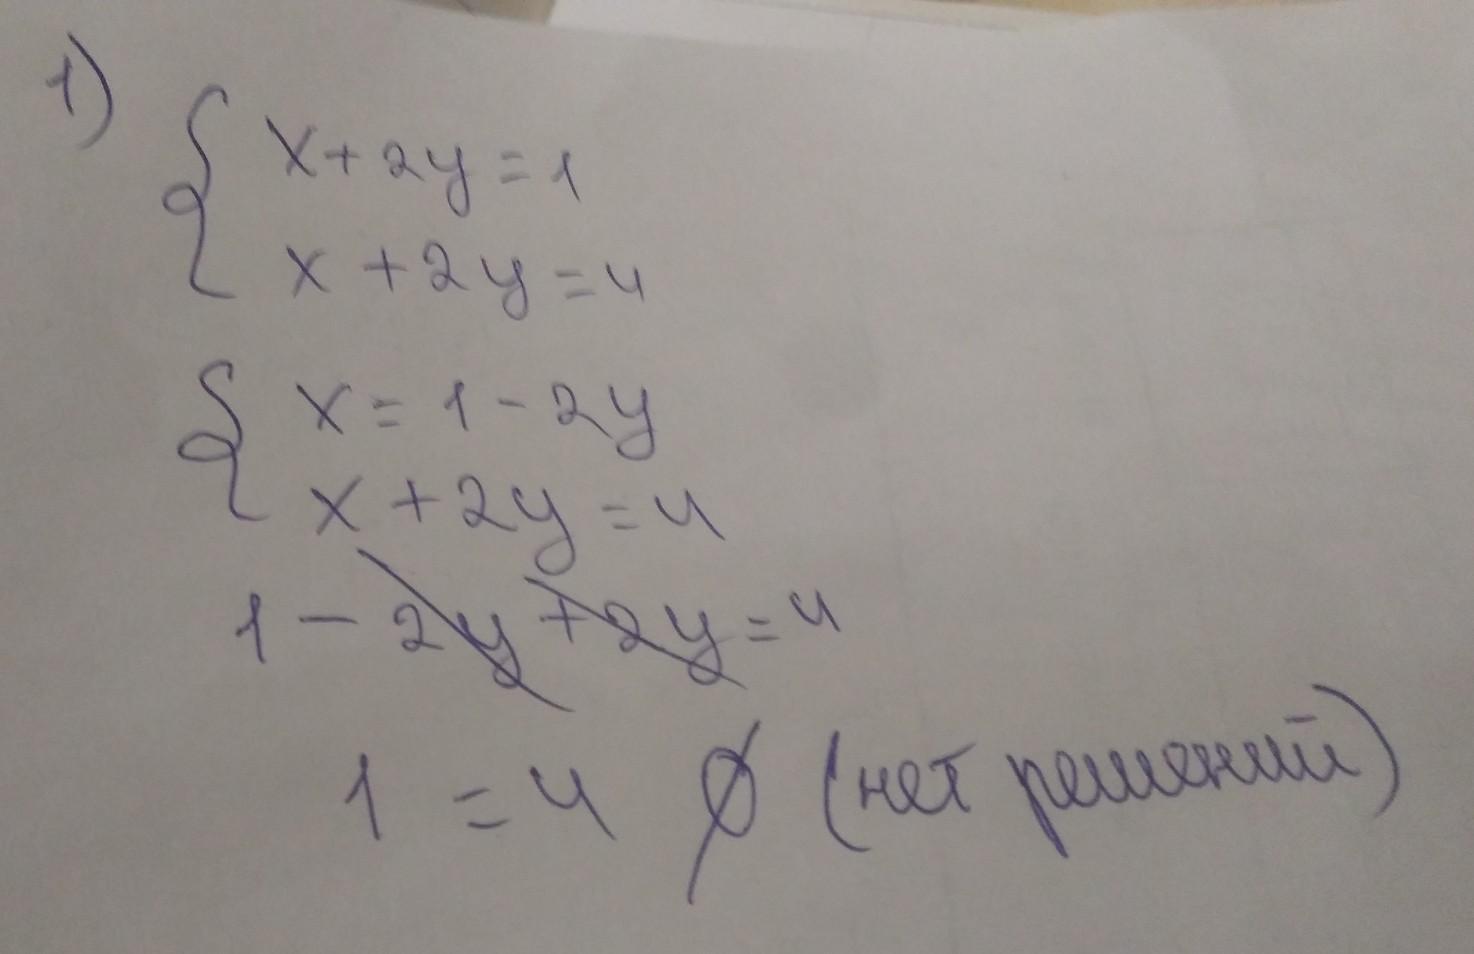 1)
x+2y=1
x+2y=4
x=1-2y
x+2y=4
1-2y+2y=4
1=4 ∅ (нет решений)